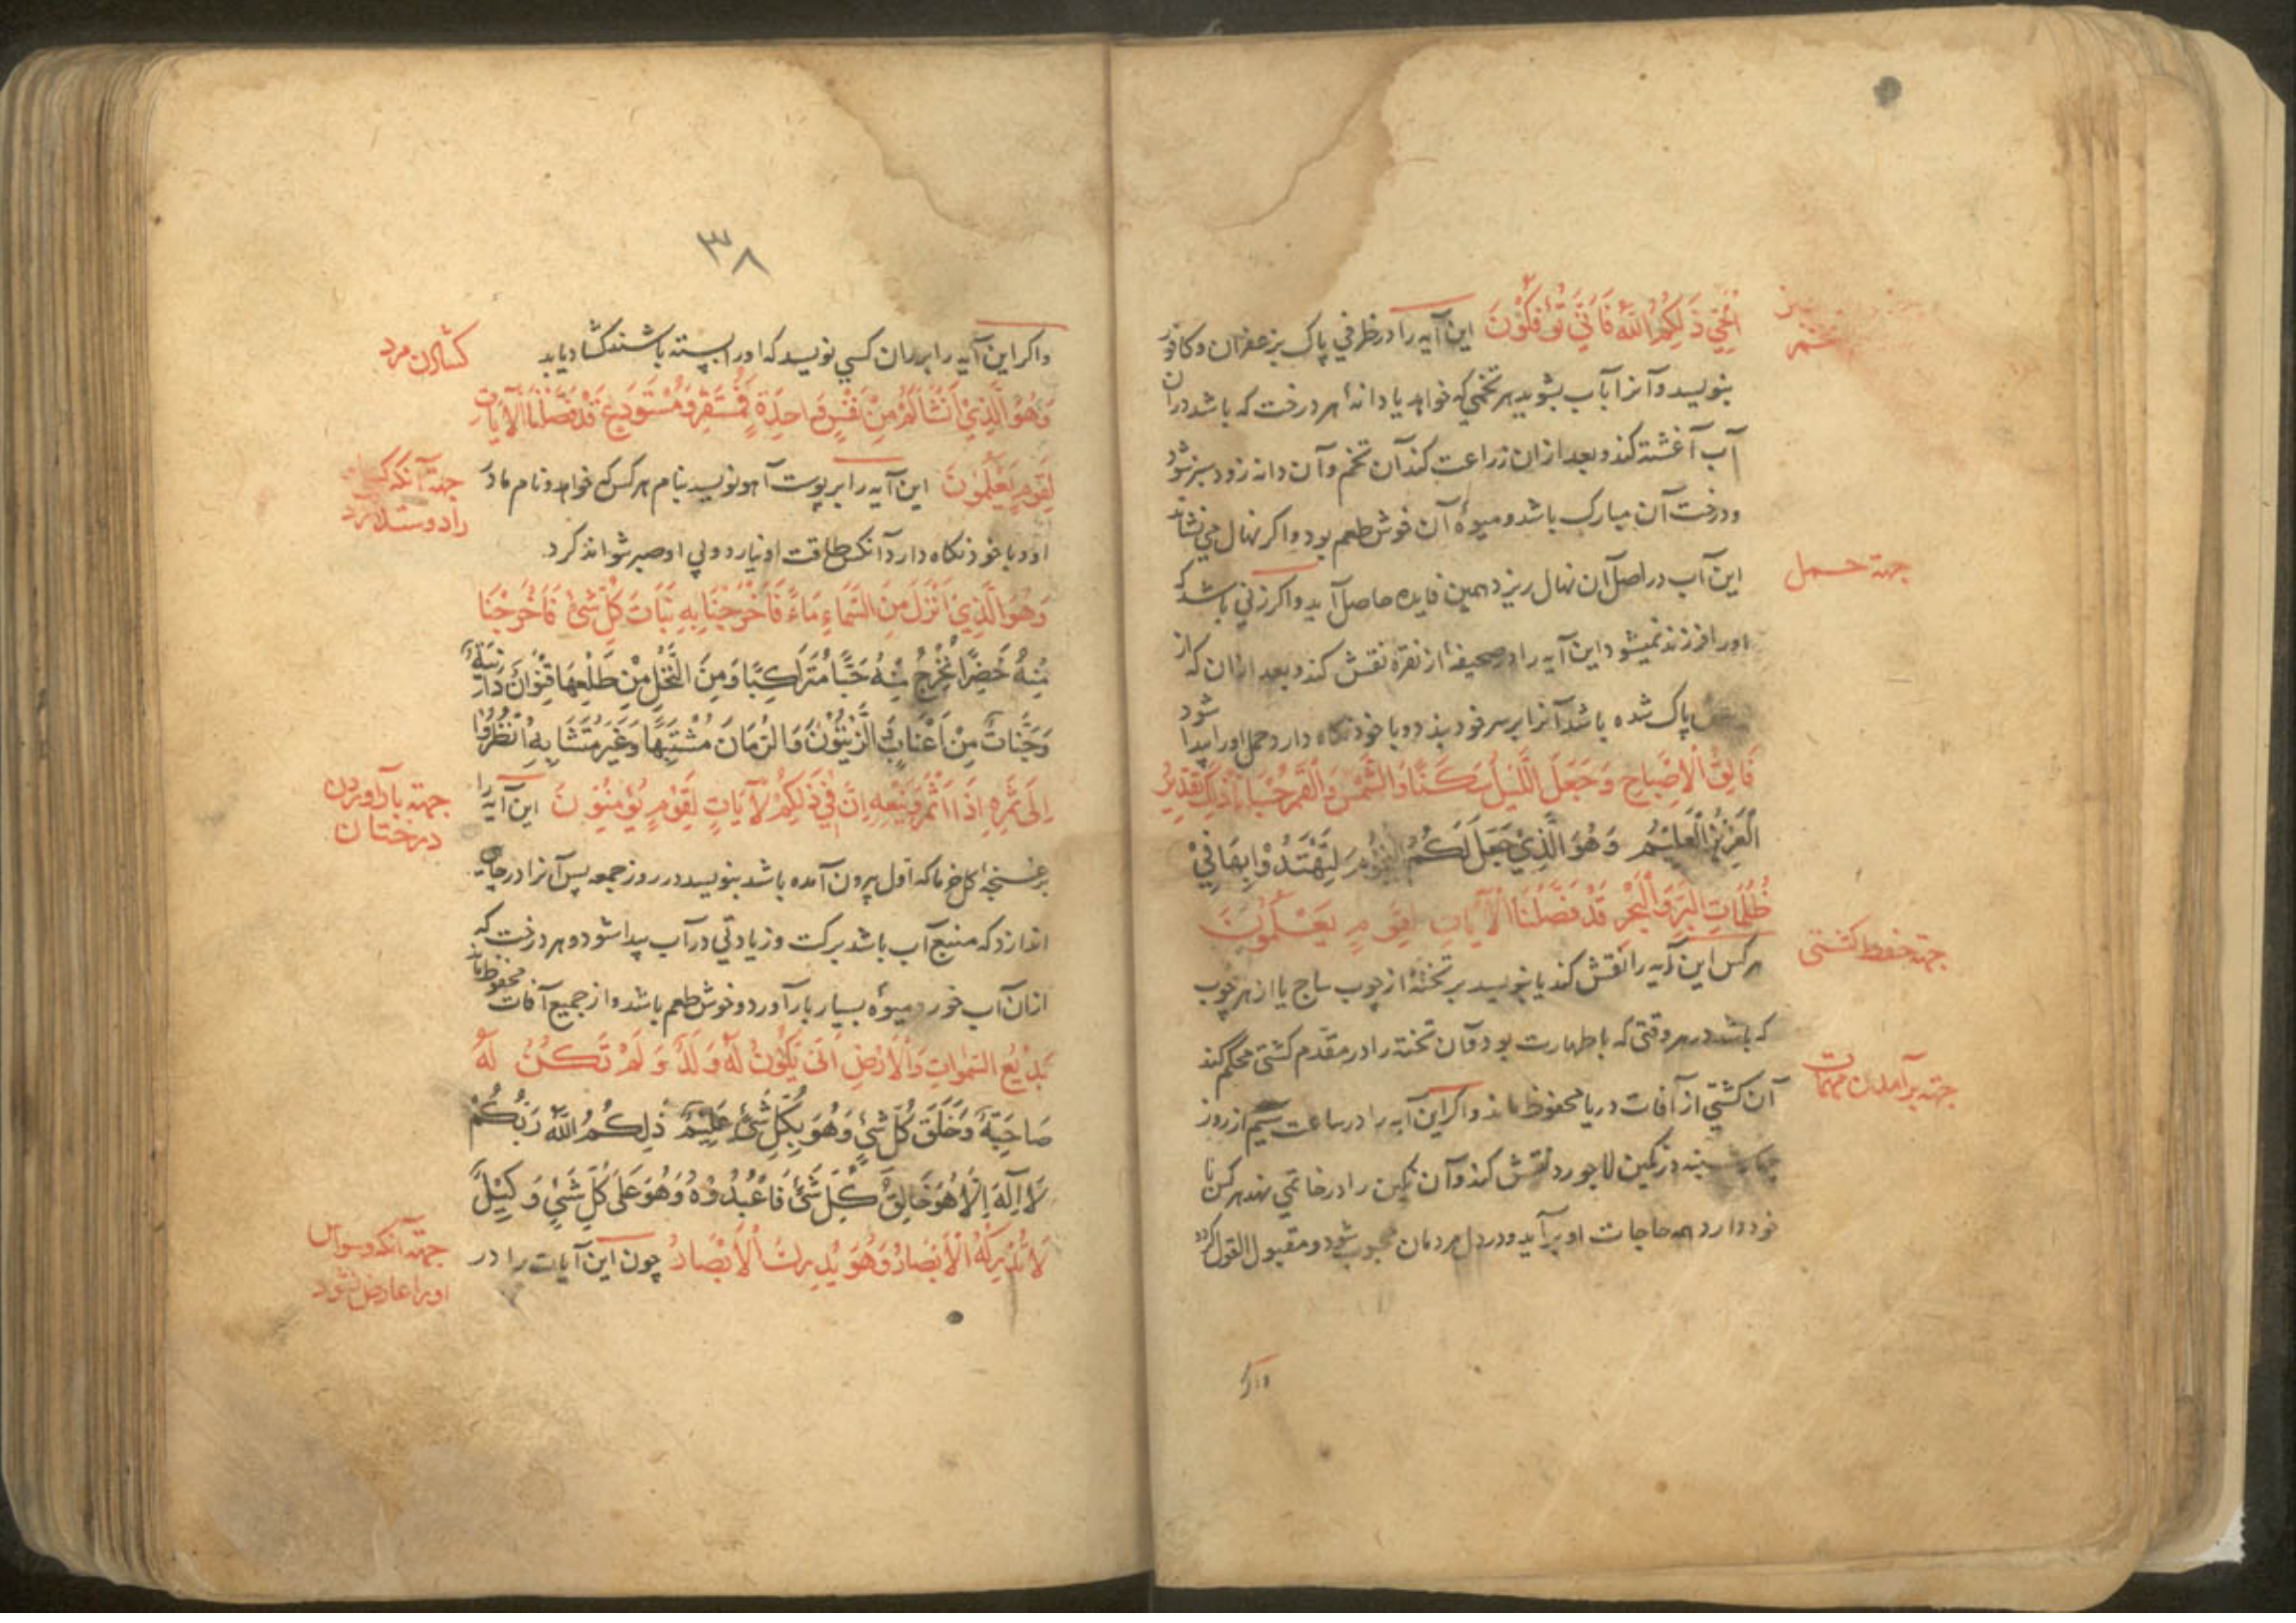 الْحَيِّ ذَلِكُمُ اللَّهُ فَأَنَّى تُؤْفَكُونَ این آیه را در ظرفي پاک بزعفران وکافور
تخم
بنویسد وآنرا بآب بشوید هر تخمي که خواهد یا دانهٔ هر درخت که باشد دران
آب آغشته کند وبعد ازان زراعت کند آن تخم وآن دانه زود سبز شود
ودرخت آن مبارک باشد ومیوهٔ آن خوش طعم بود واکر نهال مي نشاند
جهة حمل
این آب در اصل آن نهال ریزد همین فایده حاصل آید واکر زني باشد که
اورا فرزند نمیشود این آیه را در صحیفهٔ از نقره نقش کند وبعد ازان که از
پاک شده باشد آنرا بر سر خود بندد وبا خود نکاه دارد حمل اورا پیدا شود
فَالِقُ الْإِصْبَاحِ وَجَعَلَ اللَّيْلَ سَكَنًا وَالشَّمْسَ وَالْقَمَرَ حُسْبَانًا ذَلِكَ تَقْدِيرُ
الْعَزِيزِ الْعَلِيمِ وَهُوَ الَّذِي جَعَلَ لَكُمُ النُّجُومَ لِتَهْتَدُوا بِهَا فِي
ظُلُمَاتِ الْبَرِّ وَالْبَحْرِ قَدْ فَصَّلْنَا الْآيَاتِ لِقَوْمٍ يَعْلَمُونَ
جهة حفظ کشتی
هرکس این آیه را نقش کند یا بنویسد بر تختهٔ از چوب ساج یا از هر چوب
که باشد در هر وقتی که با طهارت بود وآن تخته را در مقدم کشتی محکم کند
جهة برآمدن مهمات
آن کشتي از آفات دریا محفوظ ماند واکر این آیه را در ساعت سیم از روز
در نکین لاجورد نقش کند وآن نکین را در خاتمي نهد هر کس با
خود دارد همه حاجات او برآید ودر دل مردمان محبوب شود ومقبول القول کردد
واکر
٣٨
واکر این آیه را بر ران کسي نویسد که اورا بسته باشند کشاد یابد
کشادن مرد
وَهُوَ الَّذِي أَنْشَأَكُمْ مِنْ نَفْسٍ وَاحِدَةٍ فَمُسْتَقَرٌّ وَمُسْتَوْدَعٌ قَدْ فَصَّلْنَا الْآيَاتِ
لِقَوْمٍ يَعْلَمُونَ این آیه را بر پوست آهو نویسد بنام هر کس که خواهد ونام مادر
جهة آنکه
را دوست دارد
او وبا خود نکاه دارد آنکس طاقت او نیارد وبي او صبر نتواند کرد
وَهُوَ الَّذِي أَنْزَلَ مِنَ السَّمَاءِ مَاءً فَأَخْرَجْنَا بِهِ نَبَاتَ كُلِّ شَيْءٍ فَأَخْرَجْنَا
مِنْهُ خَضِرًا نُخْرِجُ مِنْهُ حَبًّا مُتَرَاكِبًا وَمِنَ النَّخْلِ مِنْ طَلْعِهَا قِنْوَانٌ دَانِيَةٌ
وَجَنَّاتٍ مِنْ أَعْنَابٍ وَالزَّيْتُونَ وَالرُّمَّانَ مُشْتَبِهًا وَغَيْرَ مُتَشَابِهٍ انْظُرُوا
إِلَى ثَمَرِهِ إِذَا أَثْمَرَ وَيَنْعِهِ إِنَّ فِي ذَلِكُمْ لَآيَاتٍ لِقَوْمٍ يُؤْمِنُونَ این آیه را
جهة بار آوردن
درختان
بر غنچهٔ کل خرما که اول بیرون آمده باشد بنویسد در روز جمعه پس آنرا در چاهي
اندازد که منبع آب باشد برکت وزیادتي در آب پیدا شود وهر درخت که
ازان آب خورد میوهٔ بسیار بار آورد وخوش طعم باشد واز جمیع آفات محفوظ ماند
بَدِيعُ السَّمٰوَاتِ وَالْأَرْضِ أَنَّى يَكُونُ لَهُ وَلَدٌ وَلَمْ تَكُنْ لَهُ
صَاحِبَةٌ وَخَلَقَ كُلَّ شَيْءٍ وَهُوَ بِكُلِّ شَيْءٍ عَلِيمٌ ذَلِكُمُ اللَّهُ رَبُّكُمْ
لَا إِلَهَ إِلَّا هُوَ خَالِقُ كُلِّ شَيْءٍ فَاعْبُدُوهُ وَهُوَ عَلَى كُلِّ شَيْءٍ وَكِيلٌ
لَا تُدْرِكُهُ الْأَبْصَارُ وَهُوَ يُدْرِكُ الْأَبْصَارَ چون این آیات را در
جهة آنکه وسواس
اورا عارض نشود